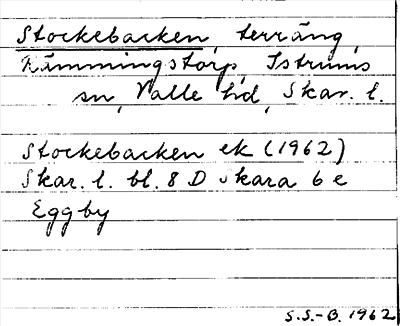 Stockebacken, terräng,
Rämmingstorp, Istrums
sn, Valle hd, Skar. l.
Stockebacken ek (1962)
Skar. l. bl. 8 D Skara 6 e
Eggby
S.S.-B. 1962